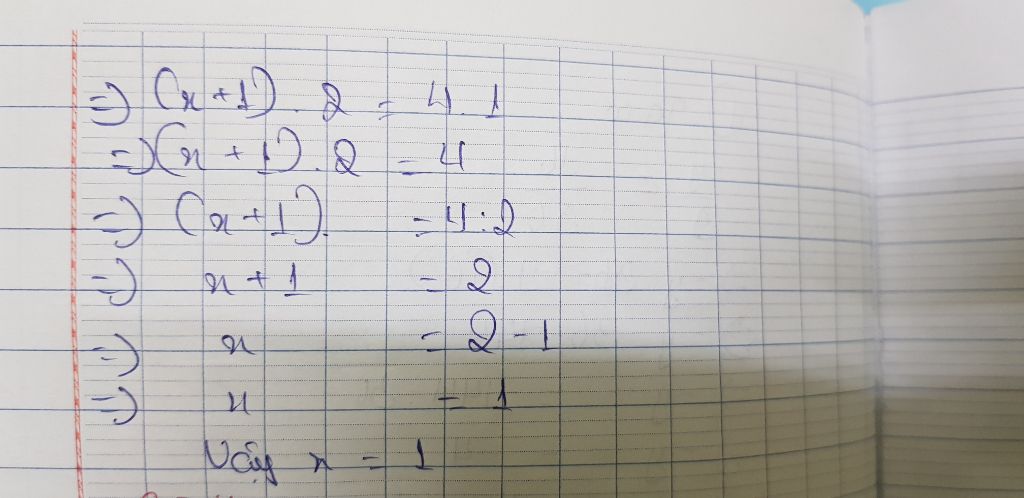 => (x+1) . 2 = 4 . 1
=> (x+1) . 2 = 4
=> (x+1). = 4:2
=> x+1 = 2
=> x = 2-1
=> x = 1
Vậy x = 1